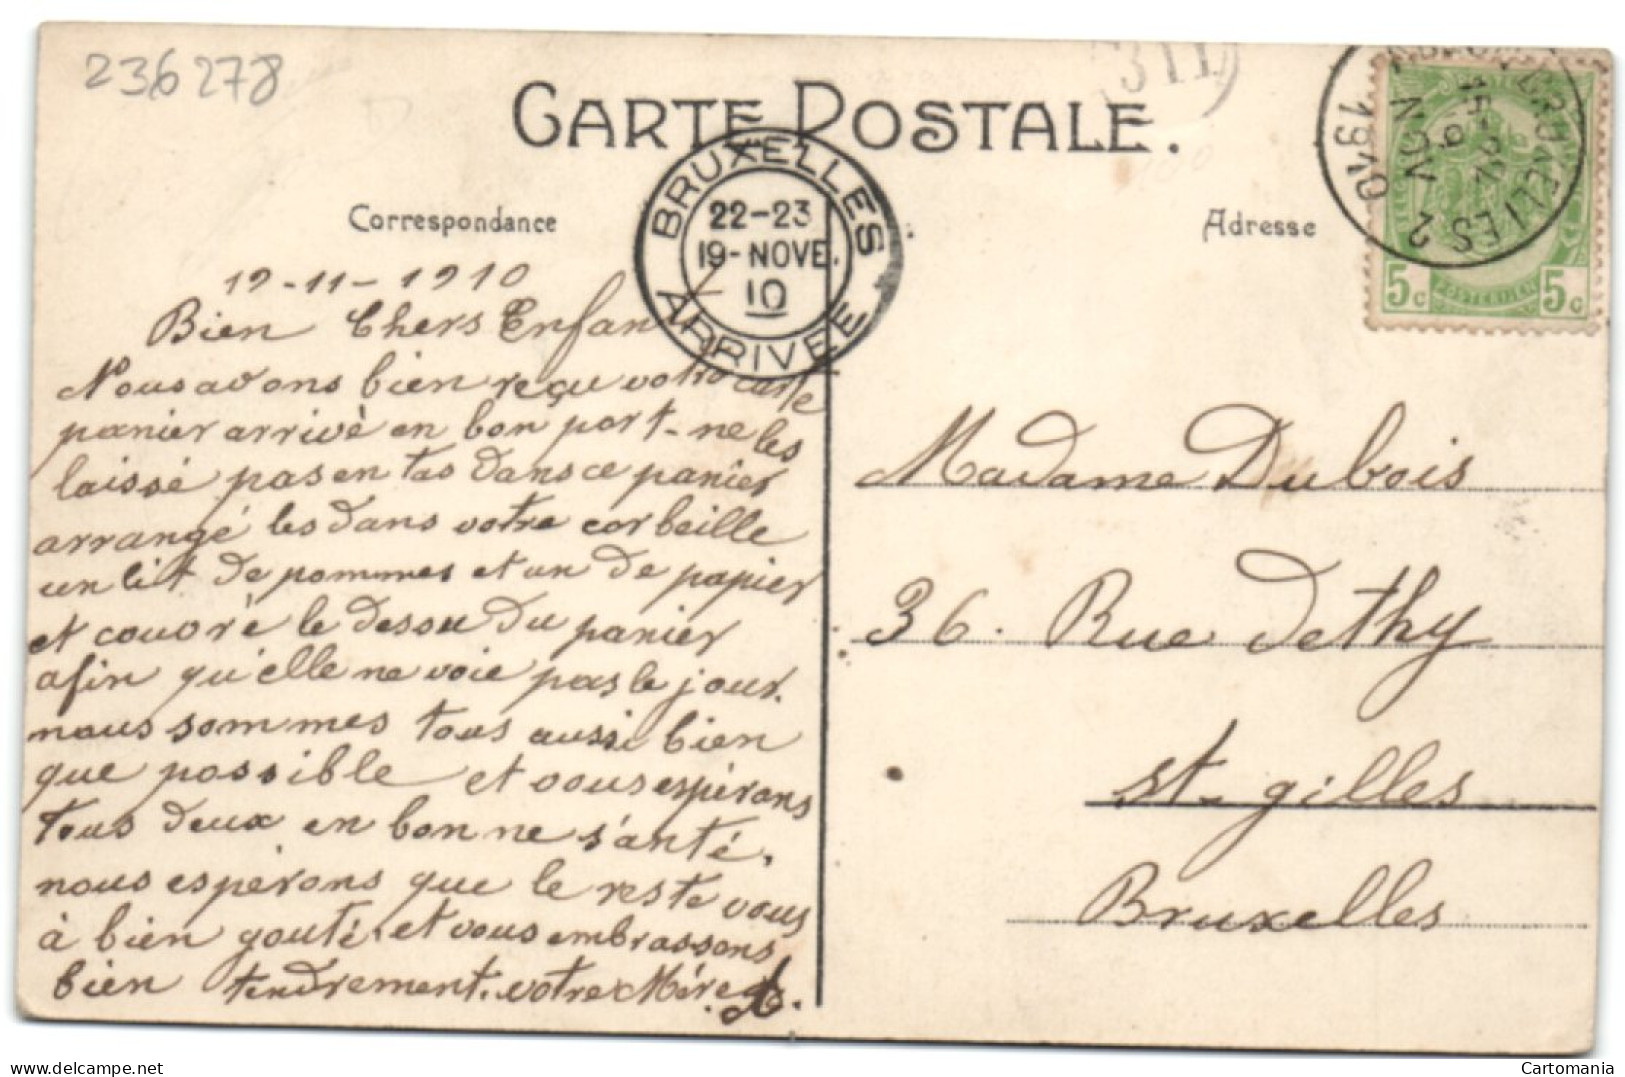 236278
CARTE POSTALE.
Correspondance
Adresse
BRUXELLES
22-23
19-NOVE.
10
ARRIVEE
BRUXELLES 2
NOV
1910
5c 5c
19-11-1910
Bien Chers Enfan
Nous avons bien reçu votre carte
panier arrivè en bon port - ne les
laissé pas en tas dans ce panier
arrangé les dans votre corbeille
un lit de pommes et un de papier
et couvré le dessu du panier
afin qu'elle ne voie pas le jour.
nous sommes tous aussi bien
que possible et vous espérons
tous deux en bonne s'anté,
nous espérons que le reste vous
à bien gouté, et vous embrassons
bien tendrement, votre Mére
Madame Dubois
36. Rue Dethy
St-gilles
Bruxelles
delcampe.net
Cartomania